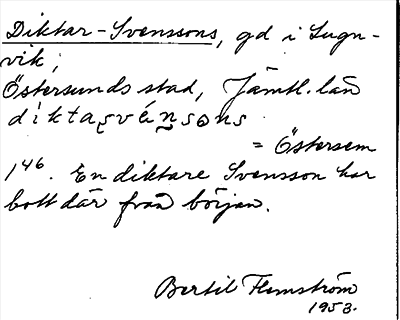 Diktar-Svenssons, gd i Lugn-
vik,
Östersunds stad, Jämtl. län
diktaṣvén̰səns
= Östersem
1⁴⁶. En diktare Svensson har
bott där från början.
Bertil Flemström
1953.